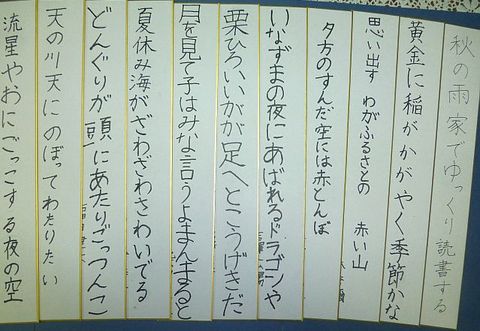 秋の雨家でゆっくり読書する
黄金に稲がかがやく季節かな
思い出す わがふるさとの 赤い山
夕方のすんだ空には赤とんぼ
いなずまの夜にあばれるドラゴンや
栗ひろいいがが足へとこうげきだ
月を見て子はみな言うよまんまると
夏休み海がざわざわさわいでる
どんぐりが頭にあたりごっつんこ
天の川天にのぼってわたりたい
流星やおにごっこする夜の空